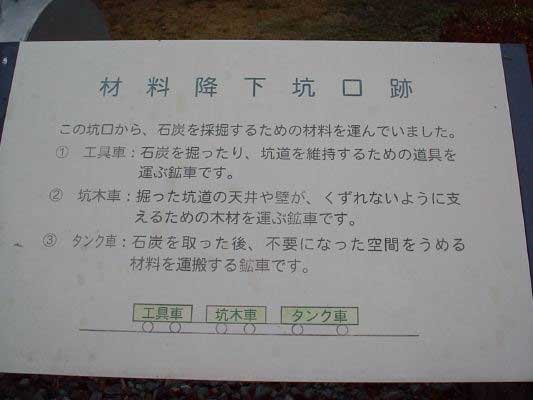 材料降下坑口跡
この坑口から、石炭を採掘するための材料を運んでいました。
① 工具車：石炭を掘ったり、坑道を維持するための道具を
運ぶ鉱車です。
② 坑木車：掘った坑道の天井や壁が、くずれないように支
えるための木材を運ぶ鉱車です。
③ タンク車：石炭を取った後、不要になった空間をうめる
材料を運搬する鉱車です。
工具車 坑木車 タンク車